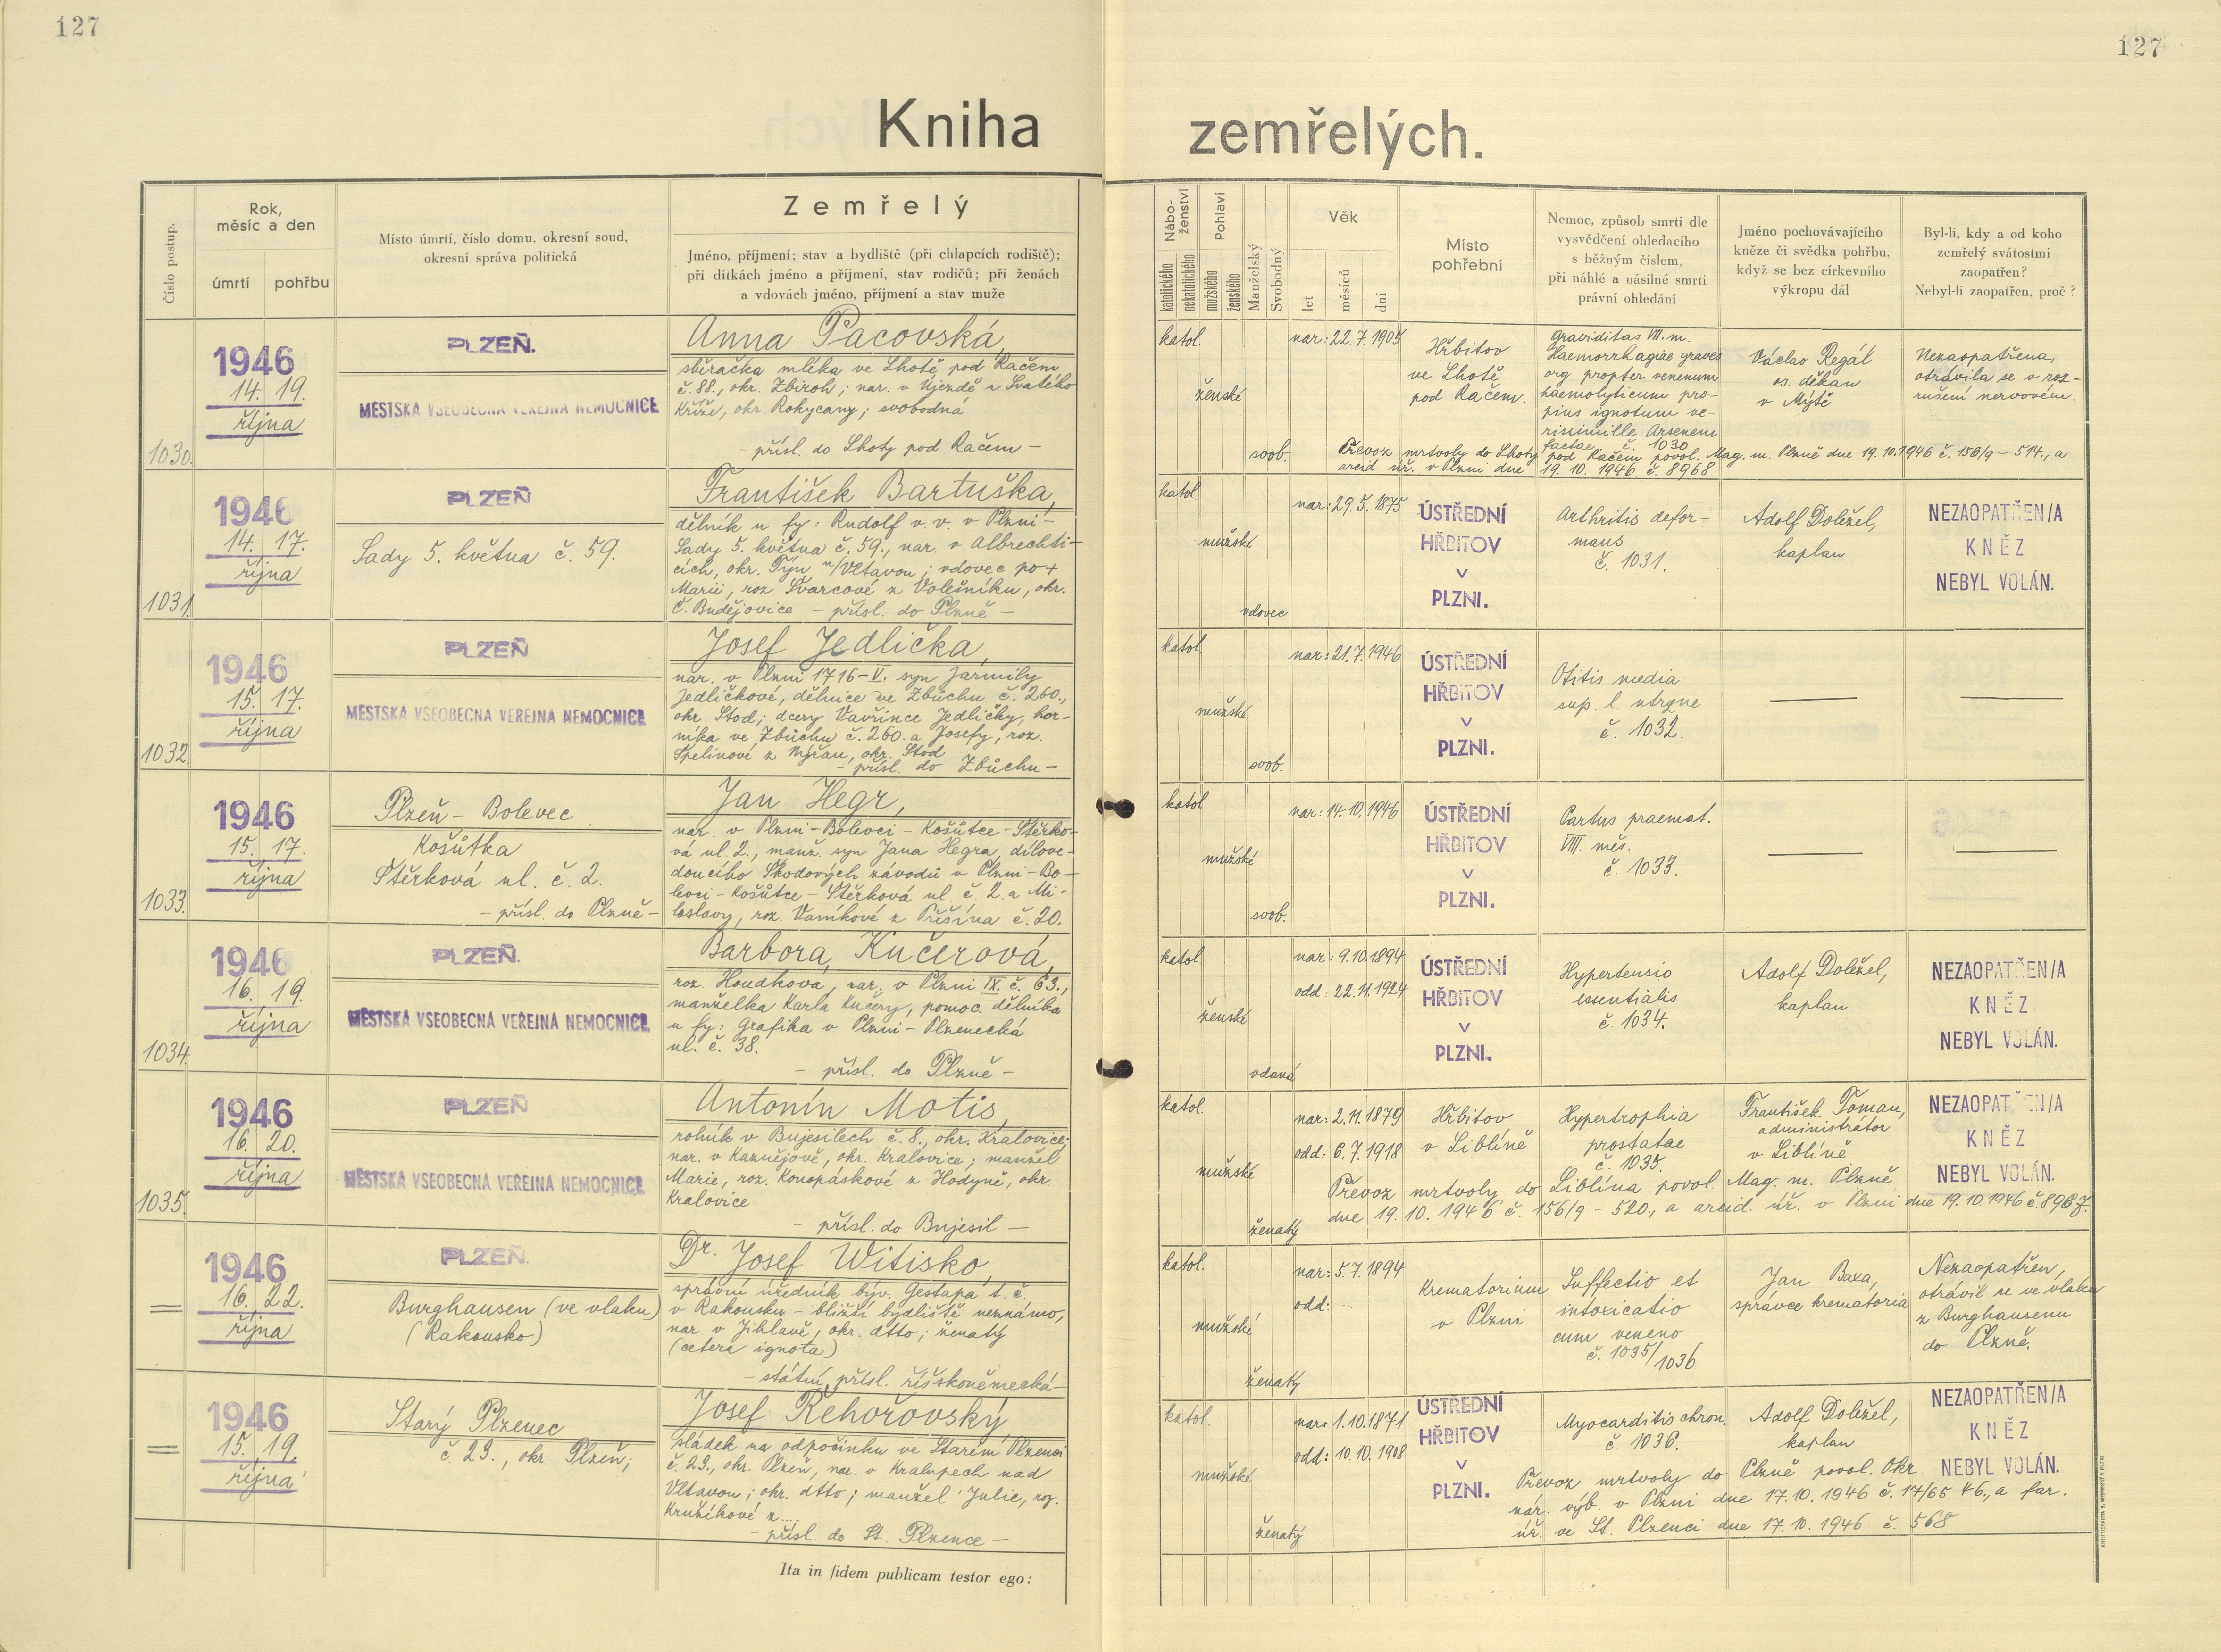 127
127
Kniha zemřelých.
Číslo postup.
Rok,
měsíc a den
úmrtí
pohřbu
Místo úmrtí, číslo domu, okresní soud,
okresní správa politická
Zemřelý
Jméno, příjmení; stav a bydliště (při chlapcích rodiště);
při dítkách jméno a příjmení, stav rodičů; při ženách
a vdovách jméno, příjmení a stav muže
Nábo-
ženství
katolického
nekatolického
Pohlaví
mužského
ženského
Manželský
Svobodný
Věk
let
měsíců
dní
Místo
pohřební
Nemoc, způsob smrti dle
vysvědčení ohledacího
s běžným číslem,
při náhlé a násilné smrti
právní ohledání
Jméno pochovávajícího
kněze či svědka pohřbu,
když se bez církevního
výkropu dál
Byl-li, kdy a od koho
zemřelý svátostmi
zaopatřen?
Nebyl-li zaopatřen, proč?
1030.
1946
14. 19.
října
PLZEŇ.
MĚSTSKÁ VŠEOBECNÁ VEŘEJNÁ NEMOCNICE
Anna Pacovská,
sběračka mléka ve Lhotě pod Račem
č. 88., okr. Zbiroh; nar. v Újezdě u Svatého
Kříže, okr. Rokycany; svobodná
- přísl. do Lhoty pod Račem -
katol.
ženské
svob.
nar: 22.7.1905
Hřbitov
ve Lhotě
pod Račem.
Graviditas III. m.
Haemorrhagiae graves
org. propter venenum
haemolyticum pro-
pius ignotum ve-
rissimille Arsenem
factae č. 1030
Václav Regál
os. děkan
v Mýtě
Nezaopatřena,
otrávila se v roz-
rušení nervovém.
Převoz mrtvoly do Lhoty pod Račem povol. Mag. m. Plzně dne 19.10.1946 č. 156/9 - 514., a
arcid. úř. v Plzni dne 19. 10. 1946 č. 8968
1031.
1946
14. 17.
října
PLZEŇ
Sady 5. května č. 59.
František Bartuška,
dělník u fy: Rudolf v. v. v Plzni-
Sady 5. května č. 59., nar. v Albrechti-
cích, okr. Týn n/Vltavou; vdovec po +
Marii, roz. Švarcové z Volešníku, okr.
Č. Budějovice - přísl. do Plzně -
katol.
mužské
vdovec
nar: 29.5.1875
ÚSTŘEDNÍ
HŘBITOV
V
PLZNI.
Arthritis defor-
mans
č. 1031.
Adolf Doležel,
kaplan
NEZAOPATŘEN/A
KNĚZ
NEBYL VOLÁN.
1032.
1946
15. 17.
října
PLZEŇ
MĚSTSKÁ VŠEOBECNÁ VEŘEJNÁ NEMOCNICE
Josef Jedlička,
nar. v Plzni 1716-V. syn Jarmily
Jedličkové, dělnice ve Zbůchu č. 260.,
okr. Stod; dcery Vavřince Jedličky, hor-
níka ve Zbůchu č. 260. a Josefy, roz.
Špelinové z Nýřan, okr. Stod
- přísl. do Zbůchu -
katol.
mužské
svob.
nar: 21.7.1946
ÚSTŘEDNÍ
HŘBITOV
V
PLZNI.
Otitis media
sup. l. utrque
č. 1032.
1033.
1946
15. 17.
října
Plzeň - Bolevec
Košůtka
Štěrková ul. č. 2.
- přísl. do Plzně -
Jan Hegr,
nar. v Plzni-Bolevci - Košůtce - Štěrko-
vá ul. 2., manž. syn Jana Hegra, dílove-
doucího Škodových závodů v Plzni - Bo-
levci - Košůtce - Štěrková ul. č. 2. a Mi-
loslavy, roz. Vaníkové z Příšína č. 20.
katol.
mužské
svob.
nar: 14.10.1946
ÚSTŘEDNÍ
HŘBITOV
V
PLZNI.
Partus praemat.
VIII. měs.
č. 1033.
1034.
1946
16. 19.
října
PLZEŇ.
MĚSTSKÁ VŠEOBECNÁ VEŘEJNÁ NEMOCNICE
Barbora Kučerová,
roz. Houdková, nar. v Plzni IX. č. 63.,
manželka Karla Kučery, pomoc. dělníka
u fy: Grafika v Plzni - Plzenecká
ul. č. 38.
- přísl. do Plzně -
katol.
ženské
vdaná
nar: 9.10.1894
odd: 22.11.1924
ÚSTŘEDNÍ
HŘBITOV
V
PLZNI.
Hypertensio
essentialis
č. 1034.
Adolf Doležel,
kaplan
NEZAOPATŘEN/A
KNĚZ
NEBYL VOLÁN.
1035.
1946
16. 20.
října
PLZEŇ
MĚSTSKÁ VŠEOBECNÁ VEŘEJNÁ NEMOCNICE
Antonín Motis,
rolník v Bujesilech č. 8., okr. Kralovice;
nar. v Kaznějově, okr. Kralovice; manžel
Marie, roz. Konopáskové z Hodyně, okr.
Kralovice
- přísl. do Bujesil -
katol.
mužské
ženatý
nar: 2.11.1879
odd: 6.7.1918
Hřbitov
v Liblíně
Hypertrophia
prostatae
č. 1035.
František Toman,
administrátor
v Liblíně
NEZAOPATŘEN/A
KNĚZ
NEBYL VOLÁN.
Převoz mrtvoly do Liblína povol. Mag. m. Plzně
dne 19. 10. 1946 č. 156/9 - 520., a arcid. úř. v Plzni dne 19.10.1946 č. 8967.
=
1946
16. 22.
října
PLZEŇ.
Burghausen (ve vlaku)
(Rakousko)
Dr. Josef Witisko,
správní úředník býv. Gestapa t. č.
v Rakousku - bližší bydliště neznámo,
nar. v Jihlavě, okr. dtto; ženatý
(cetera ignota)
- státní přísl. říšskoněmecká -
katol.
mužské
ženatý
nar: 5.7.1894
odd: ...
Krematorium
v Plzni
Suffectio et
intoxicatio
cum veneno
č. 1035/1036
Jan Baxa,
správce krematoria
Nezaopatřen,
otrávil se ve vlaku
z Burghausenu
do Plzně.
=
1946
15. 19.
října
Starý Plzenec
č. 23., okr. Plzeň;
Josef Řehořovský,
sládek na odpočinku ve Starém Plzenci
č. 23., okr. Plzeň, nar. v Kralupech nad
Vltavou; okr. dtto; manžel Julie, roz.
Kružíkové z ...
- přísl. do St. Plzence -
katol.
mužské
ženatý
nar: 1.10.1871
odd: 10.10.1908
ÚSTŘEDNÍ
HŘBITOV
V
PLZNI.
Myocarditis chron.
č. 1036.
Adolf Doležel,
kaplan
NEZAOPATŘEN/A
KNĚZ
NEBYL VOLÁN.
Převoz mrtvoly do Plzně povol. Okr.
nár. výb. v Plzni dne 17.10.1946 č. 17/65 46., a far.
úř. ve St. Plzenci dne 17. 10. 1946 č. 568
Ita in fidem publicam testor ego: